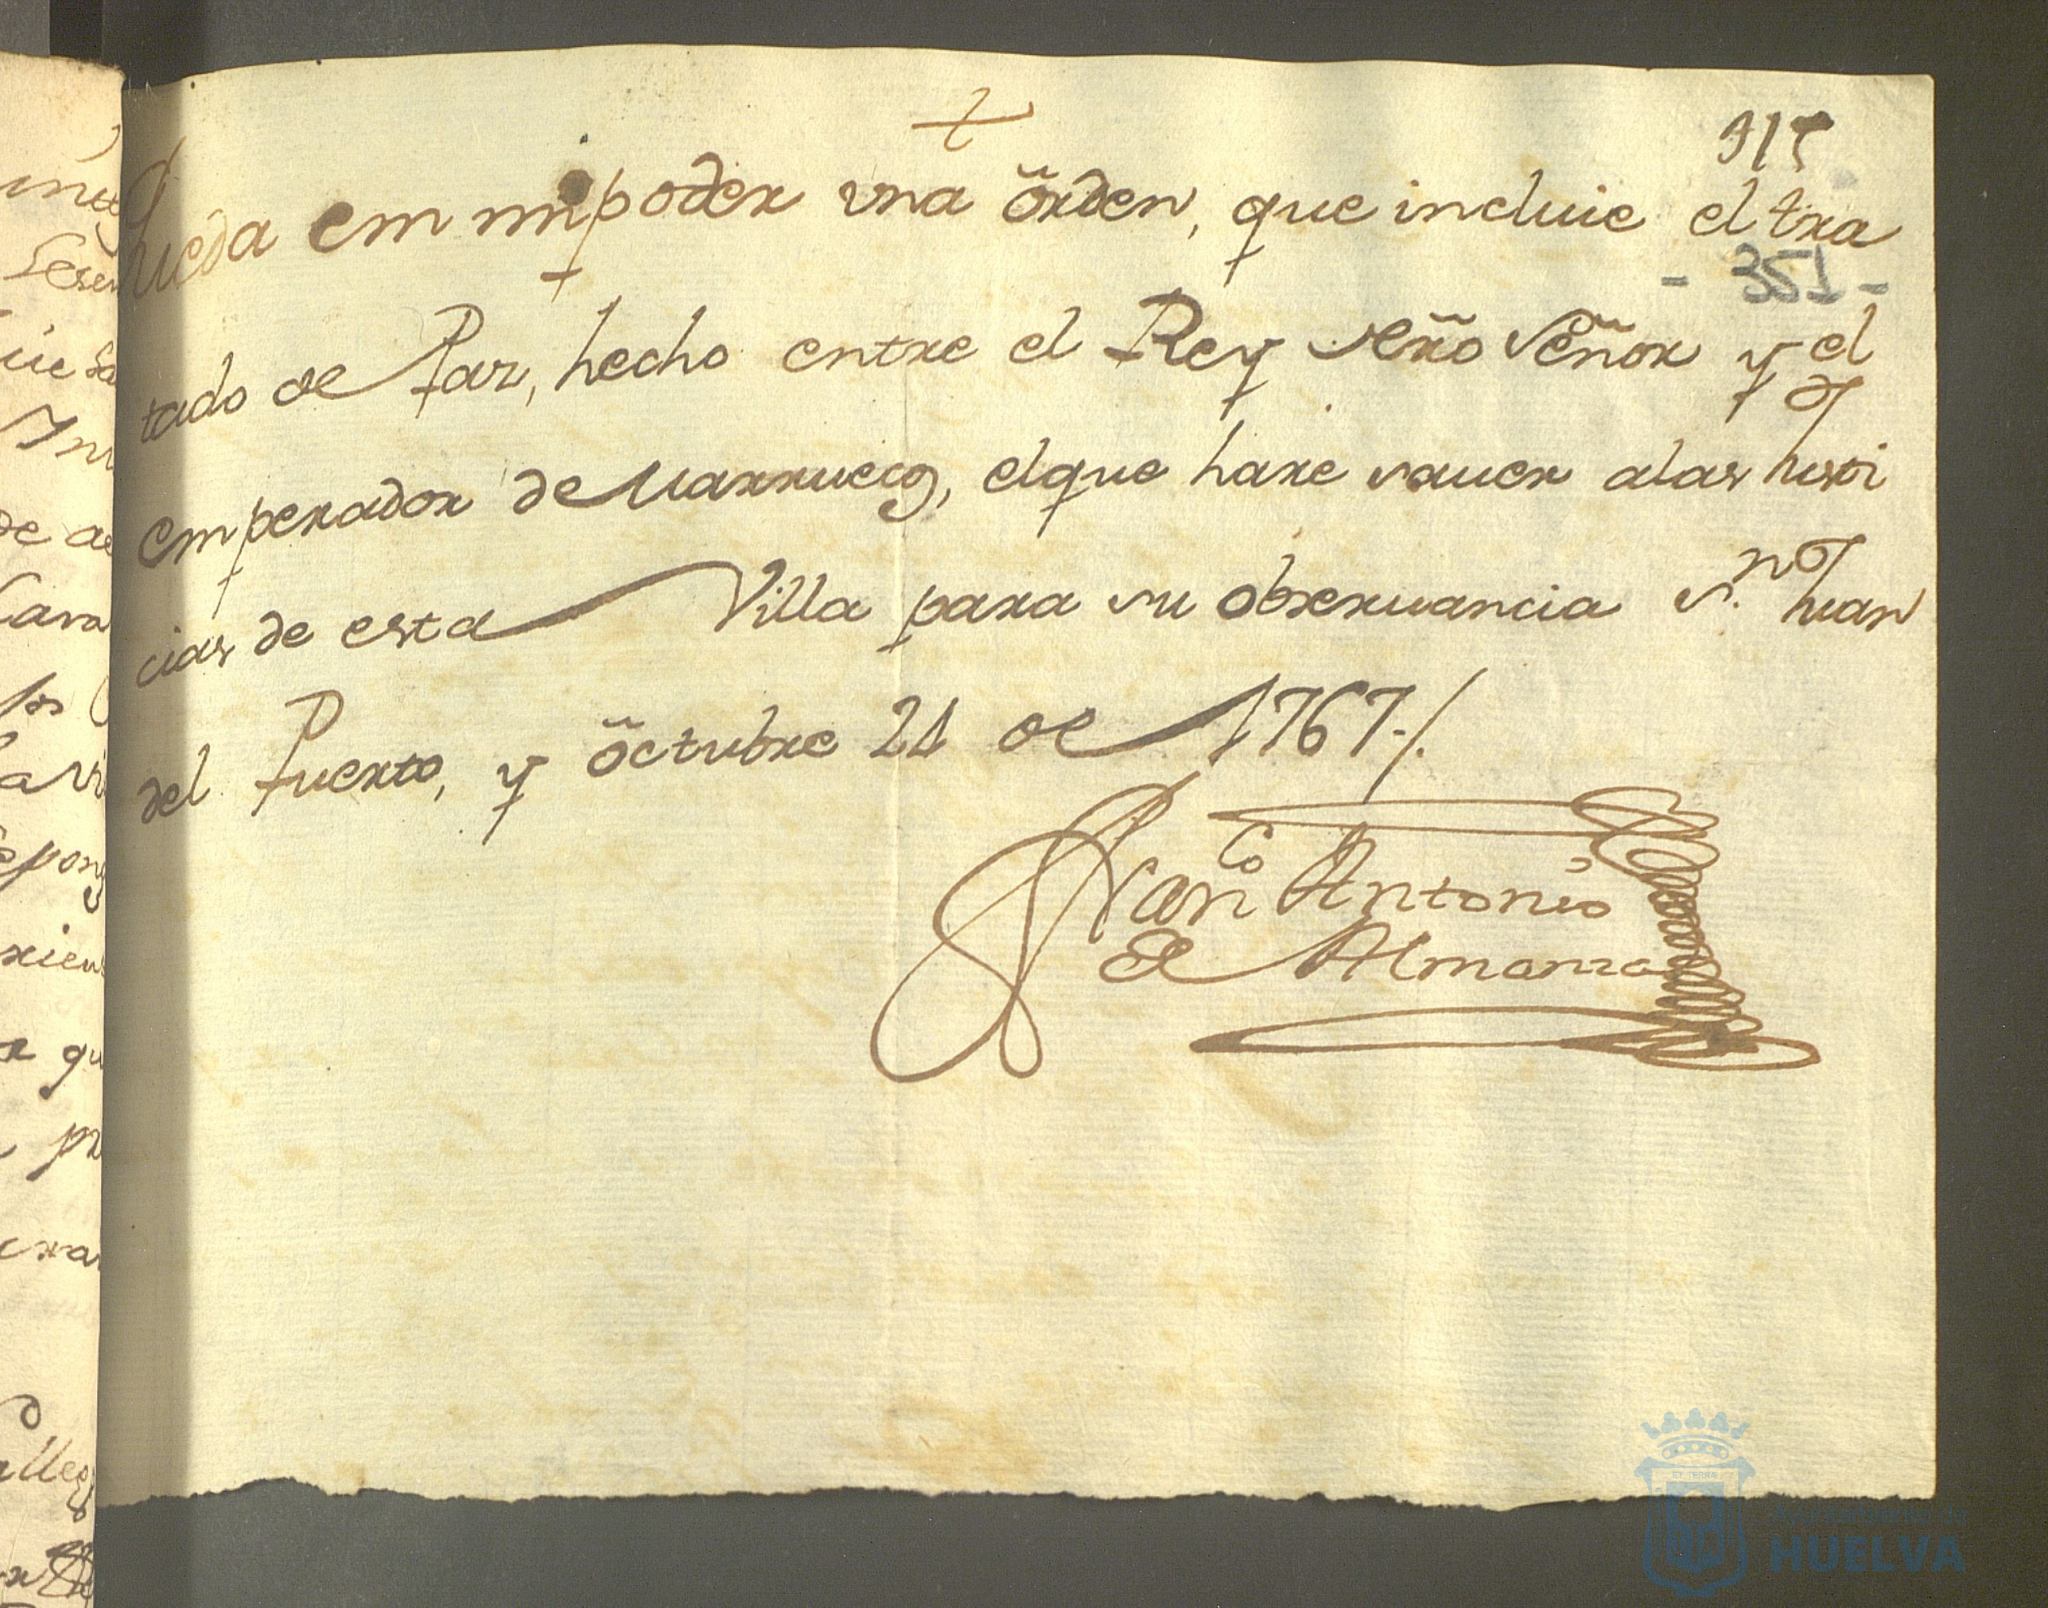 915
Queda em mi poder vna orden, que incluie el tra
- 351 -
tado de Paz, hecho entre el Rey nr̃o Señor y el
emperador de Marruecos, el que hare sauer a las Justi
cias de esta Villa para su obseruancia S.n Juan
del Puerto, y Octubre 21 de 1767./.
Franco Antonio
de Almanza
Ayuntamiento de
HUELVA